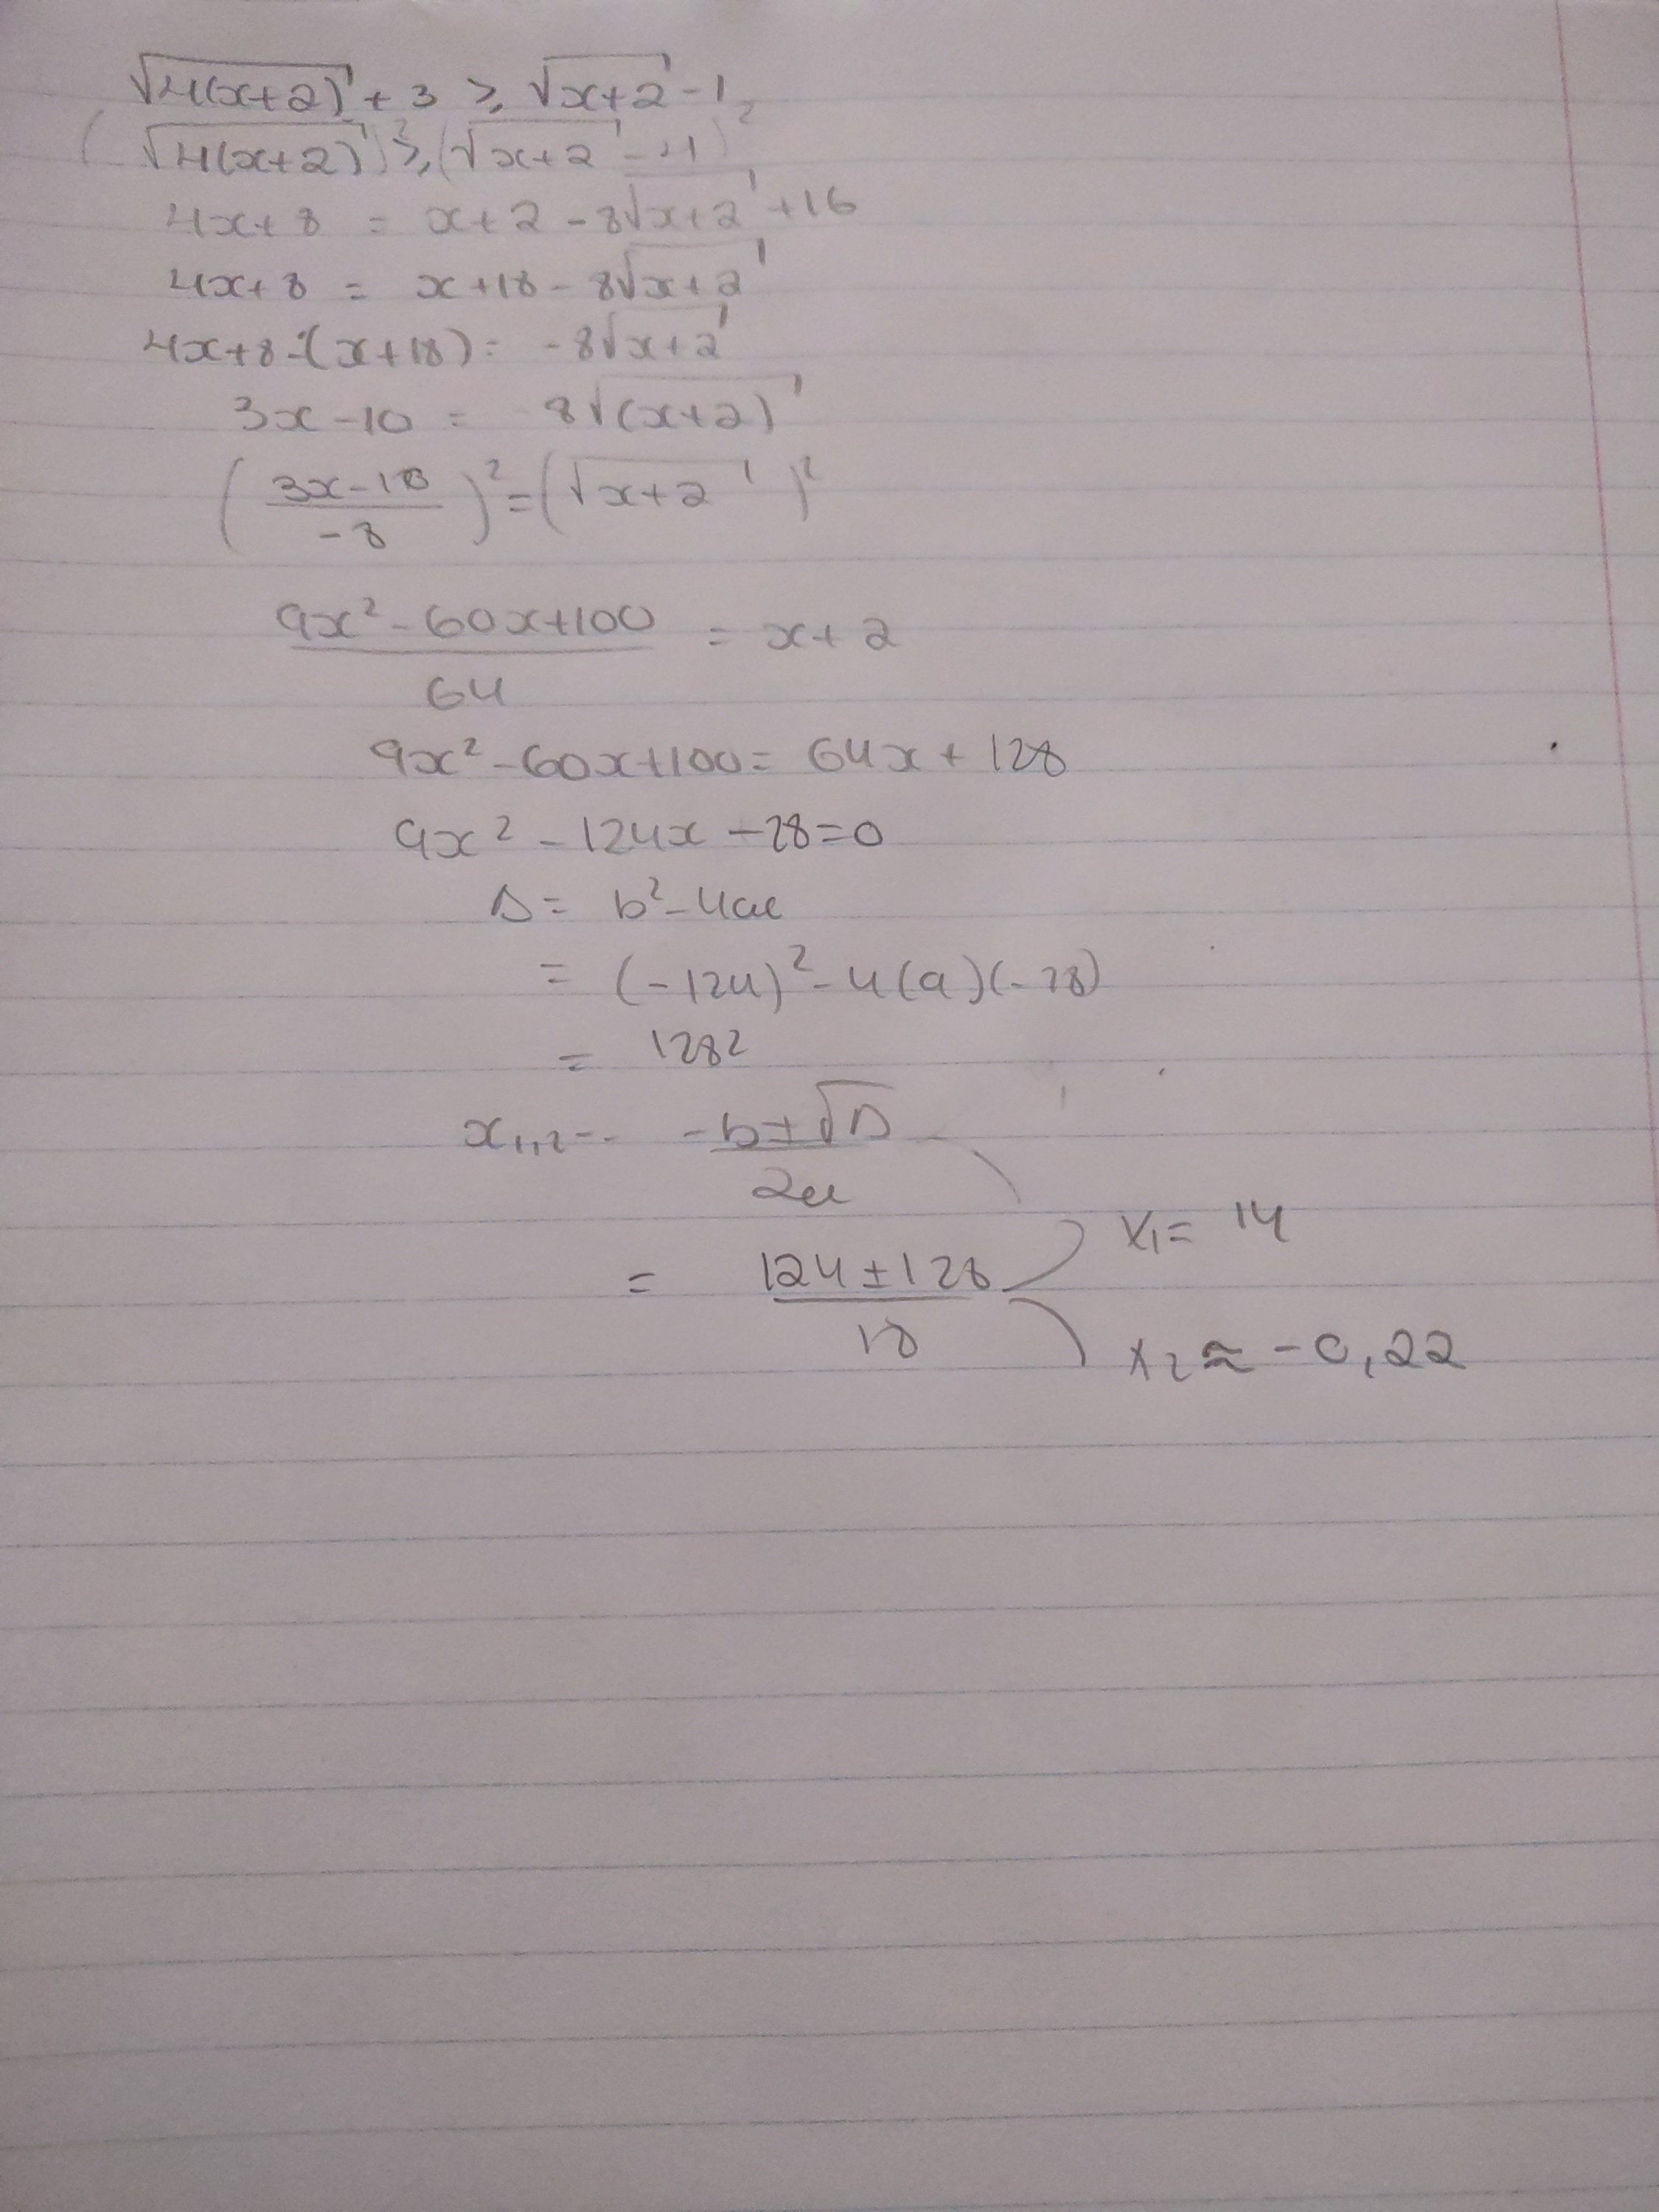 √4(x+2) + 3 ≥ √x+2 - 1
(√4(x+2))² ≥ (√x+2 - 4)²
4x+8 = x+2 - 8√x+2 + 16
4x+8 = x+18 - 8√x+2
4x+8-(x+18) = -8√x+2
3x-10 = 8√(x+2)
(3x-10/-8)² = (√x+2)²
9x²-60x+100/64 = x+2
9x²-60x+100 = 64x+128
9x²-124x-28=0
Δ = b²-4ac
= (-124)²-4(9)(-28)
= 128²
x₁,₂ = -b±√Δ/2a
= 124±128/18
x₁= 14
x₂≈ -0,22